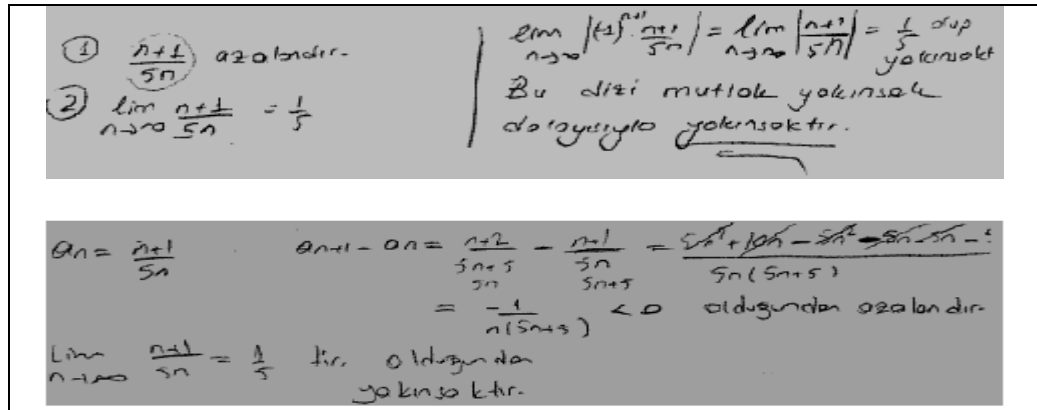 ① n+1/5n azalandır.
② lim n→∞ n+1/5n = 1/5
lim n→∞ |(-1)^n+1 · n+1/5n| = lim n→∞ |n+1/5n| = 1/5 olup yakınsak
Bu dizi mutlak yakınsak
dolayısıyla yakınsaktır.
an = n+1/5n    an+1 - an = n+2/5n+5 - n+1/5n = 5n²+10n-5n²-5n-5n-5/5n(5n+5)
= -1/n(5n+5) < 0 olduğundan azalandır.
Lim n→∞ n+1/5n = 1/5 tir. olduğundan
yakınsaktır.